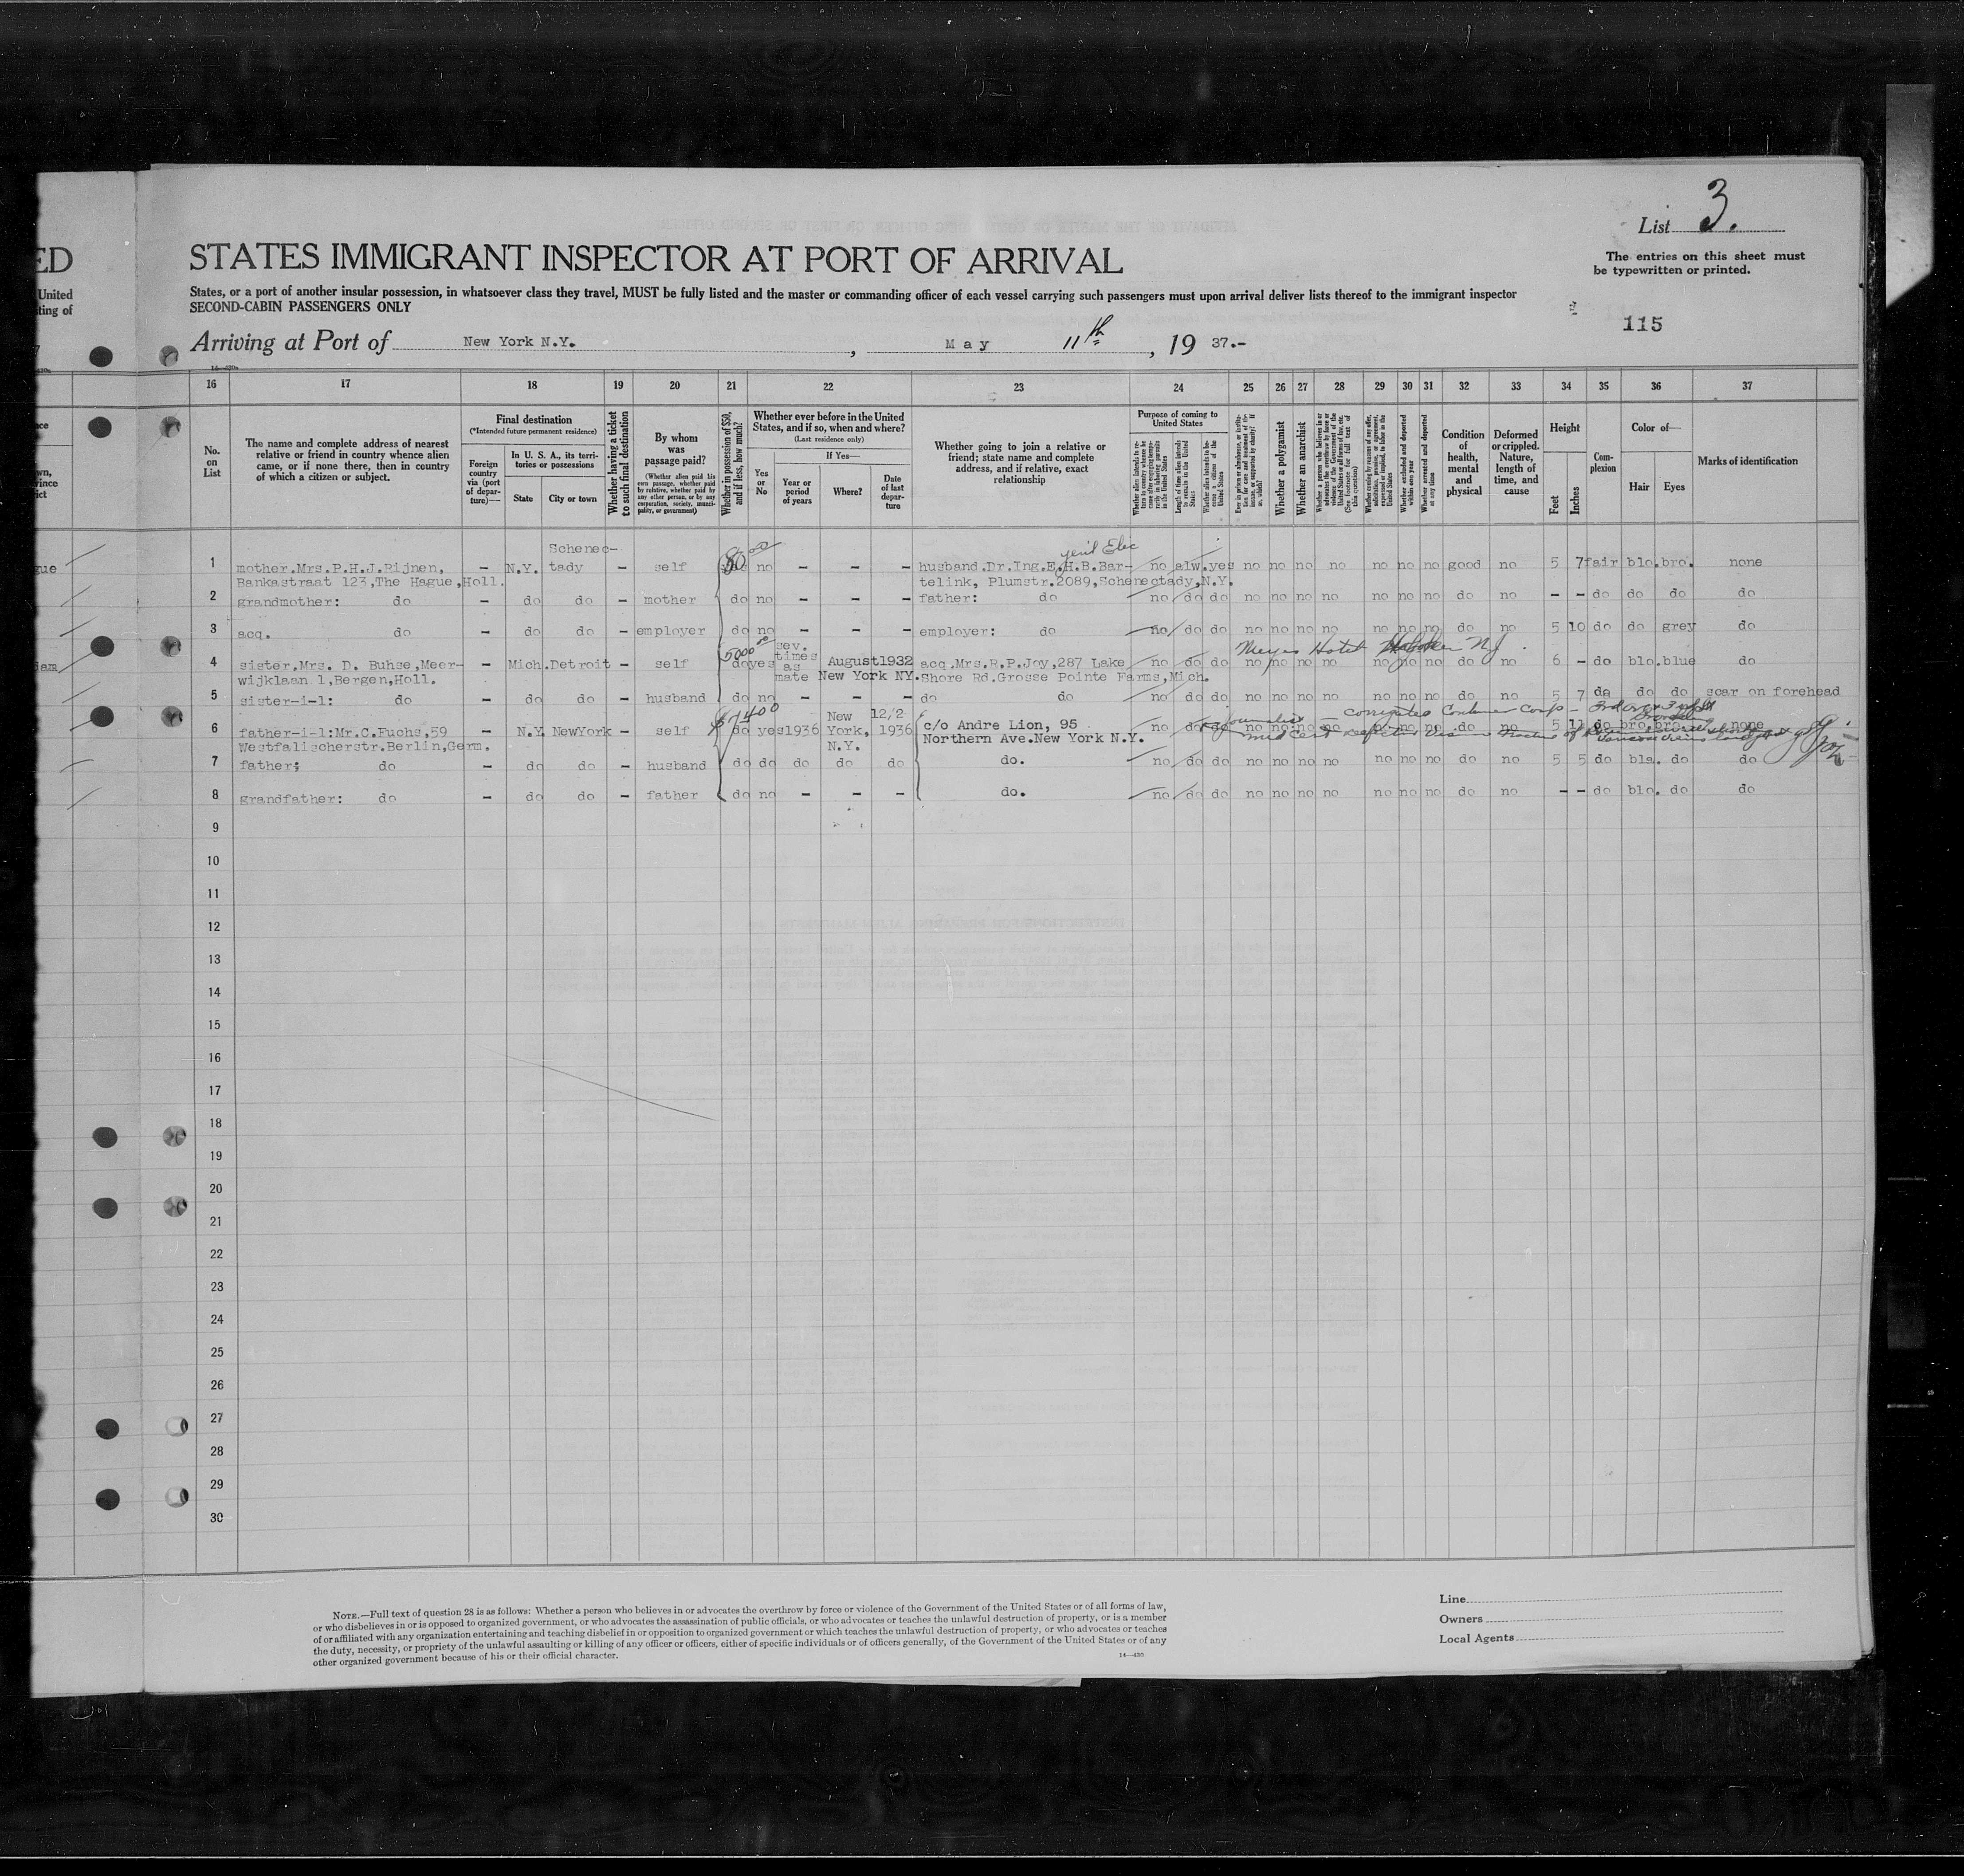 List 3.
ED
STATES IMMIGRANT INSPECTOR AT PORT OF ARRIVAL
The entries on this sheet must
be typewritten or printed.
United
ting of
States, or a port of another insular possession, in whatsoever class they travel, MUST be fully listed and the master or commanding officer of each vessel carrying such passengers must upon arrival deliver lists thereof to the immigrant inspector
SECOND-CABIN PASSENGERS ONLY
115
Arriving at Port of New York N.Y., May 11th, 19 37.-
16 17 18 19 20 21 22 23 24 25 26 27 28 29 30 31 32 33 34 35 36 37
No. on List
The name and complete address of nearest relative or friend in country whence alien came, or if none there, then in country of which a citizen or subject.
Final destination
(*Intended future permanent residence)
Foreign country via (port of departure)—
In U. S. A., its territories or possessions
State
City or town
Whether having a ticket to such final destination
By whom was passage paid?
(Whether alien paid his own passage, whether paid by relative, whether paid by any other person, or by any corporation, society, municipality, or government)
Whether in possession of $50, and if less, how much?
Whether ever before in the United States, and if so, when and where?
(Last residence only)
Yes or No
If Yes—
Year or period of years
Where?
Date of last departure
Whether going to join a relative or friend; state name and complete address, and if relative, exact relationship
Purpose of coming to United States
Whether alien intends to return to country whence he came after engaging temporarily in laboring pursuits in the United States
Length of time alien intends to remain in the United States
Whether alien intends to become a citizen of the United States
Whether a polygamist
Whether an anarchist
Whether arrested and deported at any time
Condition of health, mental and physical
Deformed or crippled. Nature, length of time, and cause
Height
Feet
Inches
Complexion
Color of—
Hair
Eyes
Marks of identification
1 mother.Mrs.P.H.J.Rijnen, – N.Y. Schenec-tady – self 50 no – – – husband.Dr.Ing.E.H.B.Bar- no alw. yes no no no no no no no good no 5 7 fair blo. bro. none
Bankastraat 123,The Hague,Holl. telink, Plumstr.2089,Schenectady,N.Y.
2 grandmother: do – do do – mother do no – – – father: do no do do no no no no no no no do no – – do do do do
3 acq. do – do do – employer do no – – – employer: do no do do no no no no no no no do no 5 10 do do grey do
Meyes Hotel Hoboken NJ
4 sister.Mrs. D. Buhse,Meer- – Mich. Detroit – self 5000 do yes sev. times as mate August 1932 New York NY. acq.Mrs.R.P.Joy,287 Lake no do do no no no no no no no do no 6 – do blo. blue do
wijklaan 1,Bergen,Holl. Shore Rd.Grosse Pointe Farms,Mich.
5 sister-i-l: do – do do – husband do no – – – do do no do do no no no no no no no do no 5 7 do do do scar on forehead
6 father-i-l:Mr.C.Fuchs,59 – N.Y. NewYork – self do yes 1936 New York, N.Y. 12/2 1936 c/o Andre Lion, 95 no do no no no no no no no do no 5 11 do bro. bro. none
Westfalischerstr.Berlin,Germ. Northern Ave.New York N.Y.
7 father: do – do do – husband do do do do do do. no do do no no no no no no no do no 5 5 do bla. do do
8 grandfather: do – do do – father do no – – – do. no do do no no no no no no no do no – – do blo. do do
9
10
11
12
13
14
15
16
17
18
19
20
21
22
23
24
25
26
27
28
29
30
NOTE.—Full text of question 28 is as follows: Whether a person who believes in or advocates the overthrow by force or violence of the Government of the United States or of all forms of law,
or who disbelieves in or is opposed to organized government, or who advocates the assassination of public officials, or who advocates or teaches the unlawful destruction of property, or is a member
of or affiliated with any organization entertaining and teaching disbelief in or opposition to organized government or which teaches the unlawful destruction of property, or who advocates or teaches
the duty, necessity, or propriety of the unlawful assaulting or killing of any officer or officers, either of specific individuals or of officers generally, of the Government of the United States or of any
other organized government because of his or their official character.
14—430
Line
Owners
Local Agents